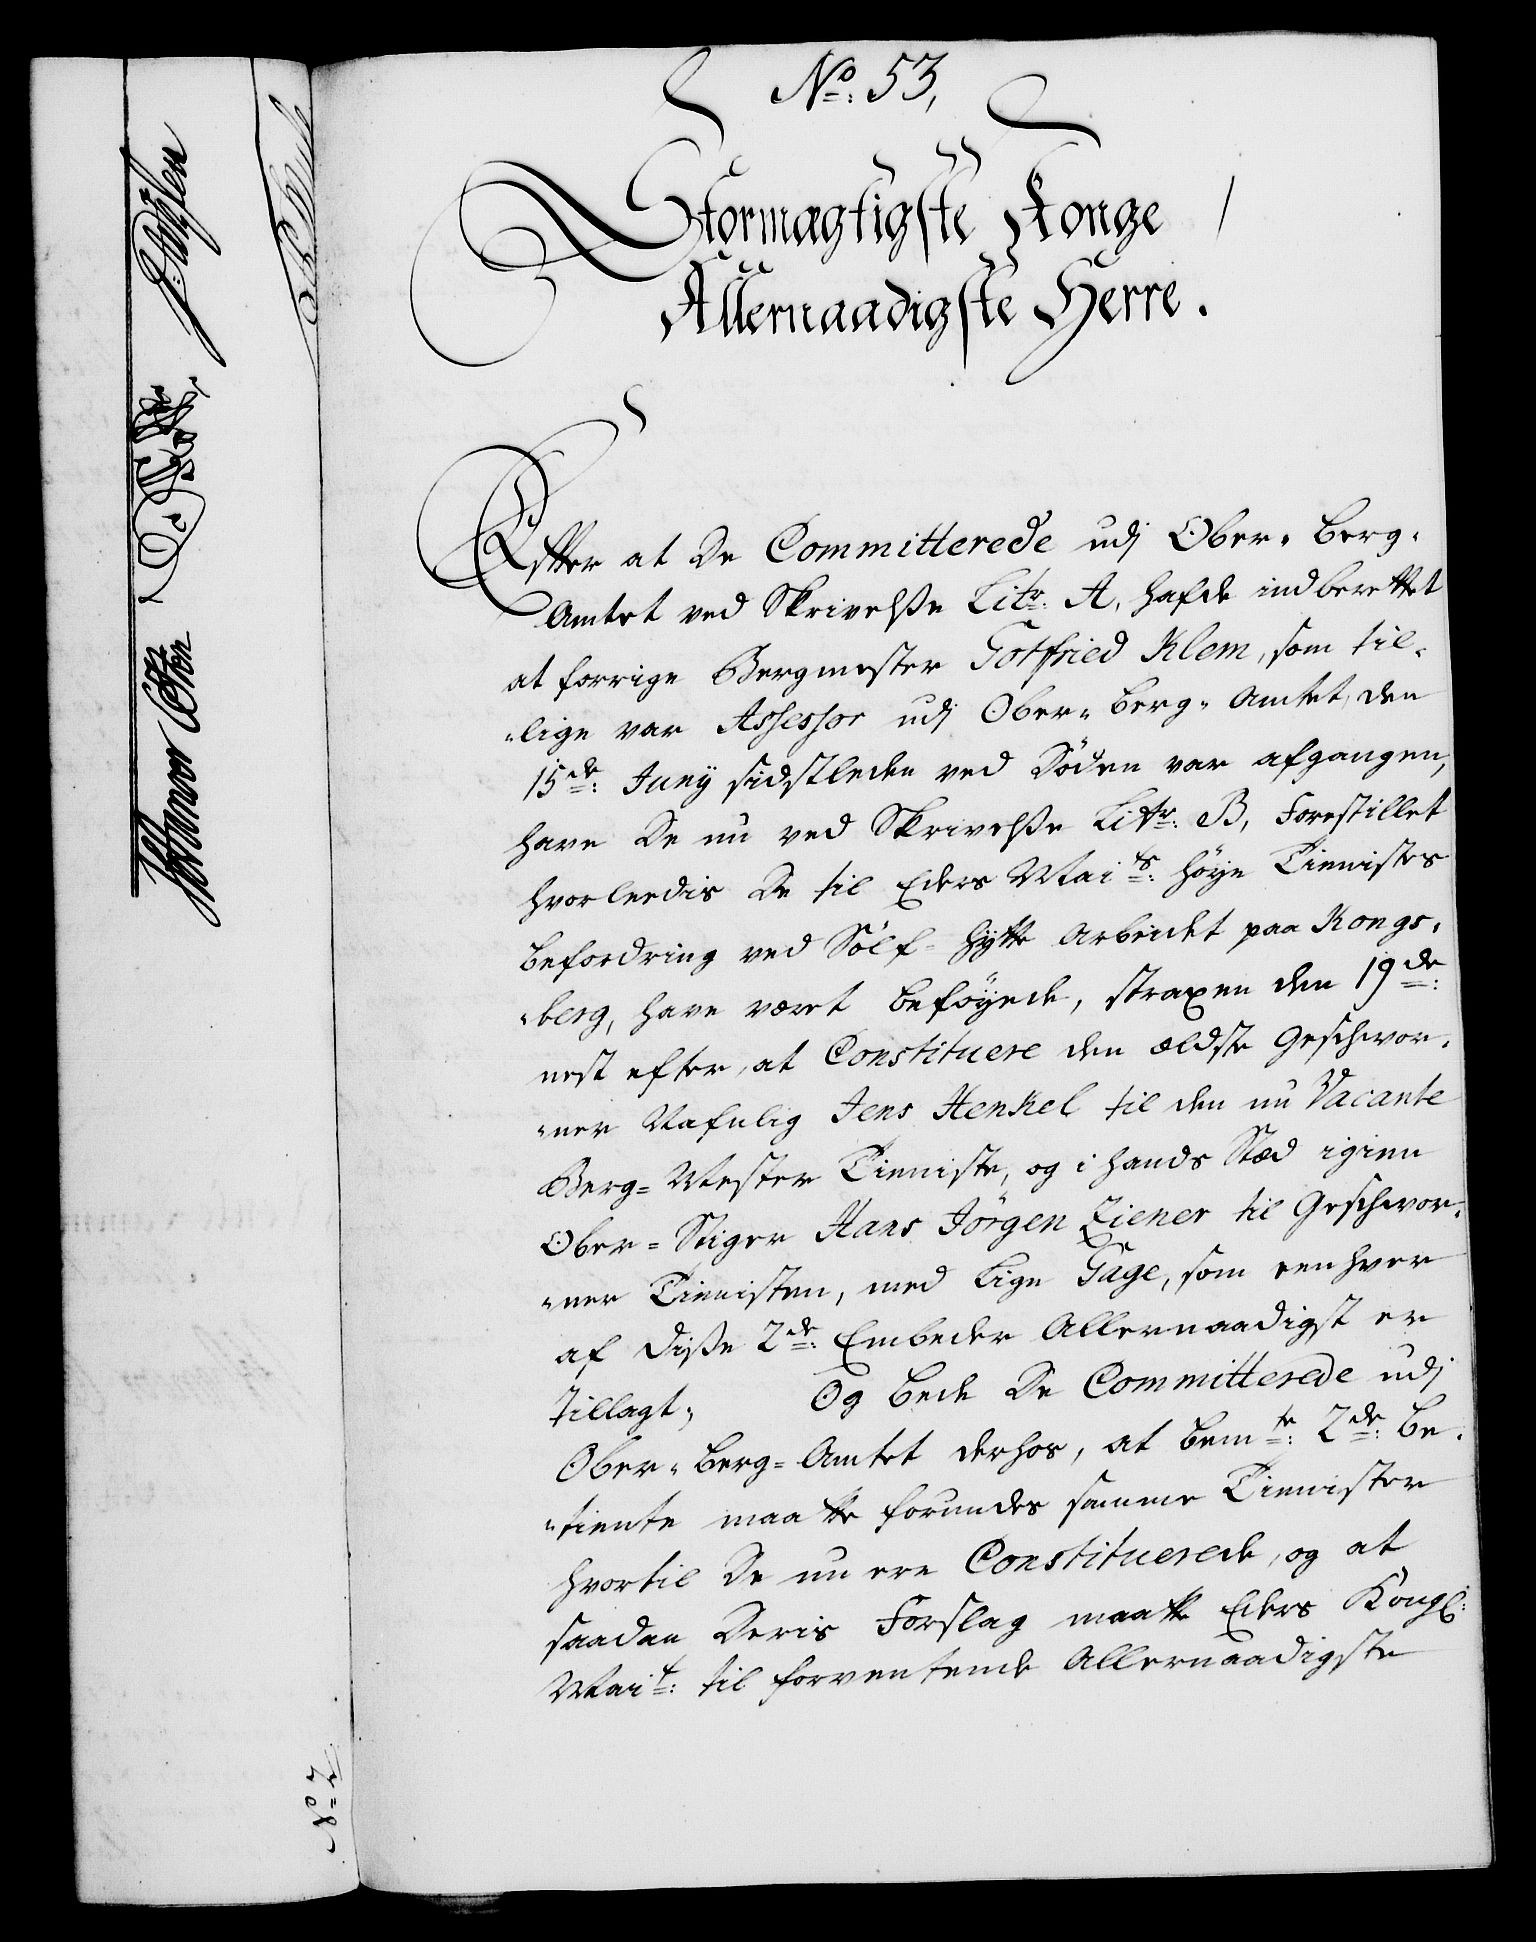 No: 53,
Stormægtigste Konge
Allernaadigste Herre.
Efter at De Committerede udj Ober-Berg-
Amtet ved Skrivelße Litr: A, hafde indberettet
at forrige Bergmester Gotfried Klem, som til-
-lige var Assessor udj Ober-Berg-Amtet, den
15de: Junÿ sidstleden ved Döden var afgangen,
have De nu ved Skrivelße Litr: B, Forestillet
hvorledis De til Eders Maits: höye Tienistes
befordring ved Sölf-Hytte Arbeidet paa Kongs-
-berg, have været beföyede, straxen den 19de:
nest efter, at Constituere den ældste Geschwor-
-ner Nafnlig Jens Henkel til den nu Vacante
Berg-Mester Tieniste, og i hands Stæd igien
Ober-Stiger Hans Jörgen Ziener til Geschwor-
-ner Tienisten, med lige Gage, som eenhver
af diße 2de: Embeder Allernaadigst er
tillagt; Og bede De Committerede udj
Ober-Berg-Amtet derhos, at bemte: 2de: be-
-tiente maatte forundes samme Tienister
hvortil De nu ere Constituerede, og at
saadan Deris Forslag maatte Eders Kongl:
Mait: til forventende Allernaadigste
No 2